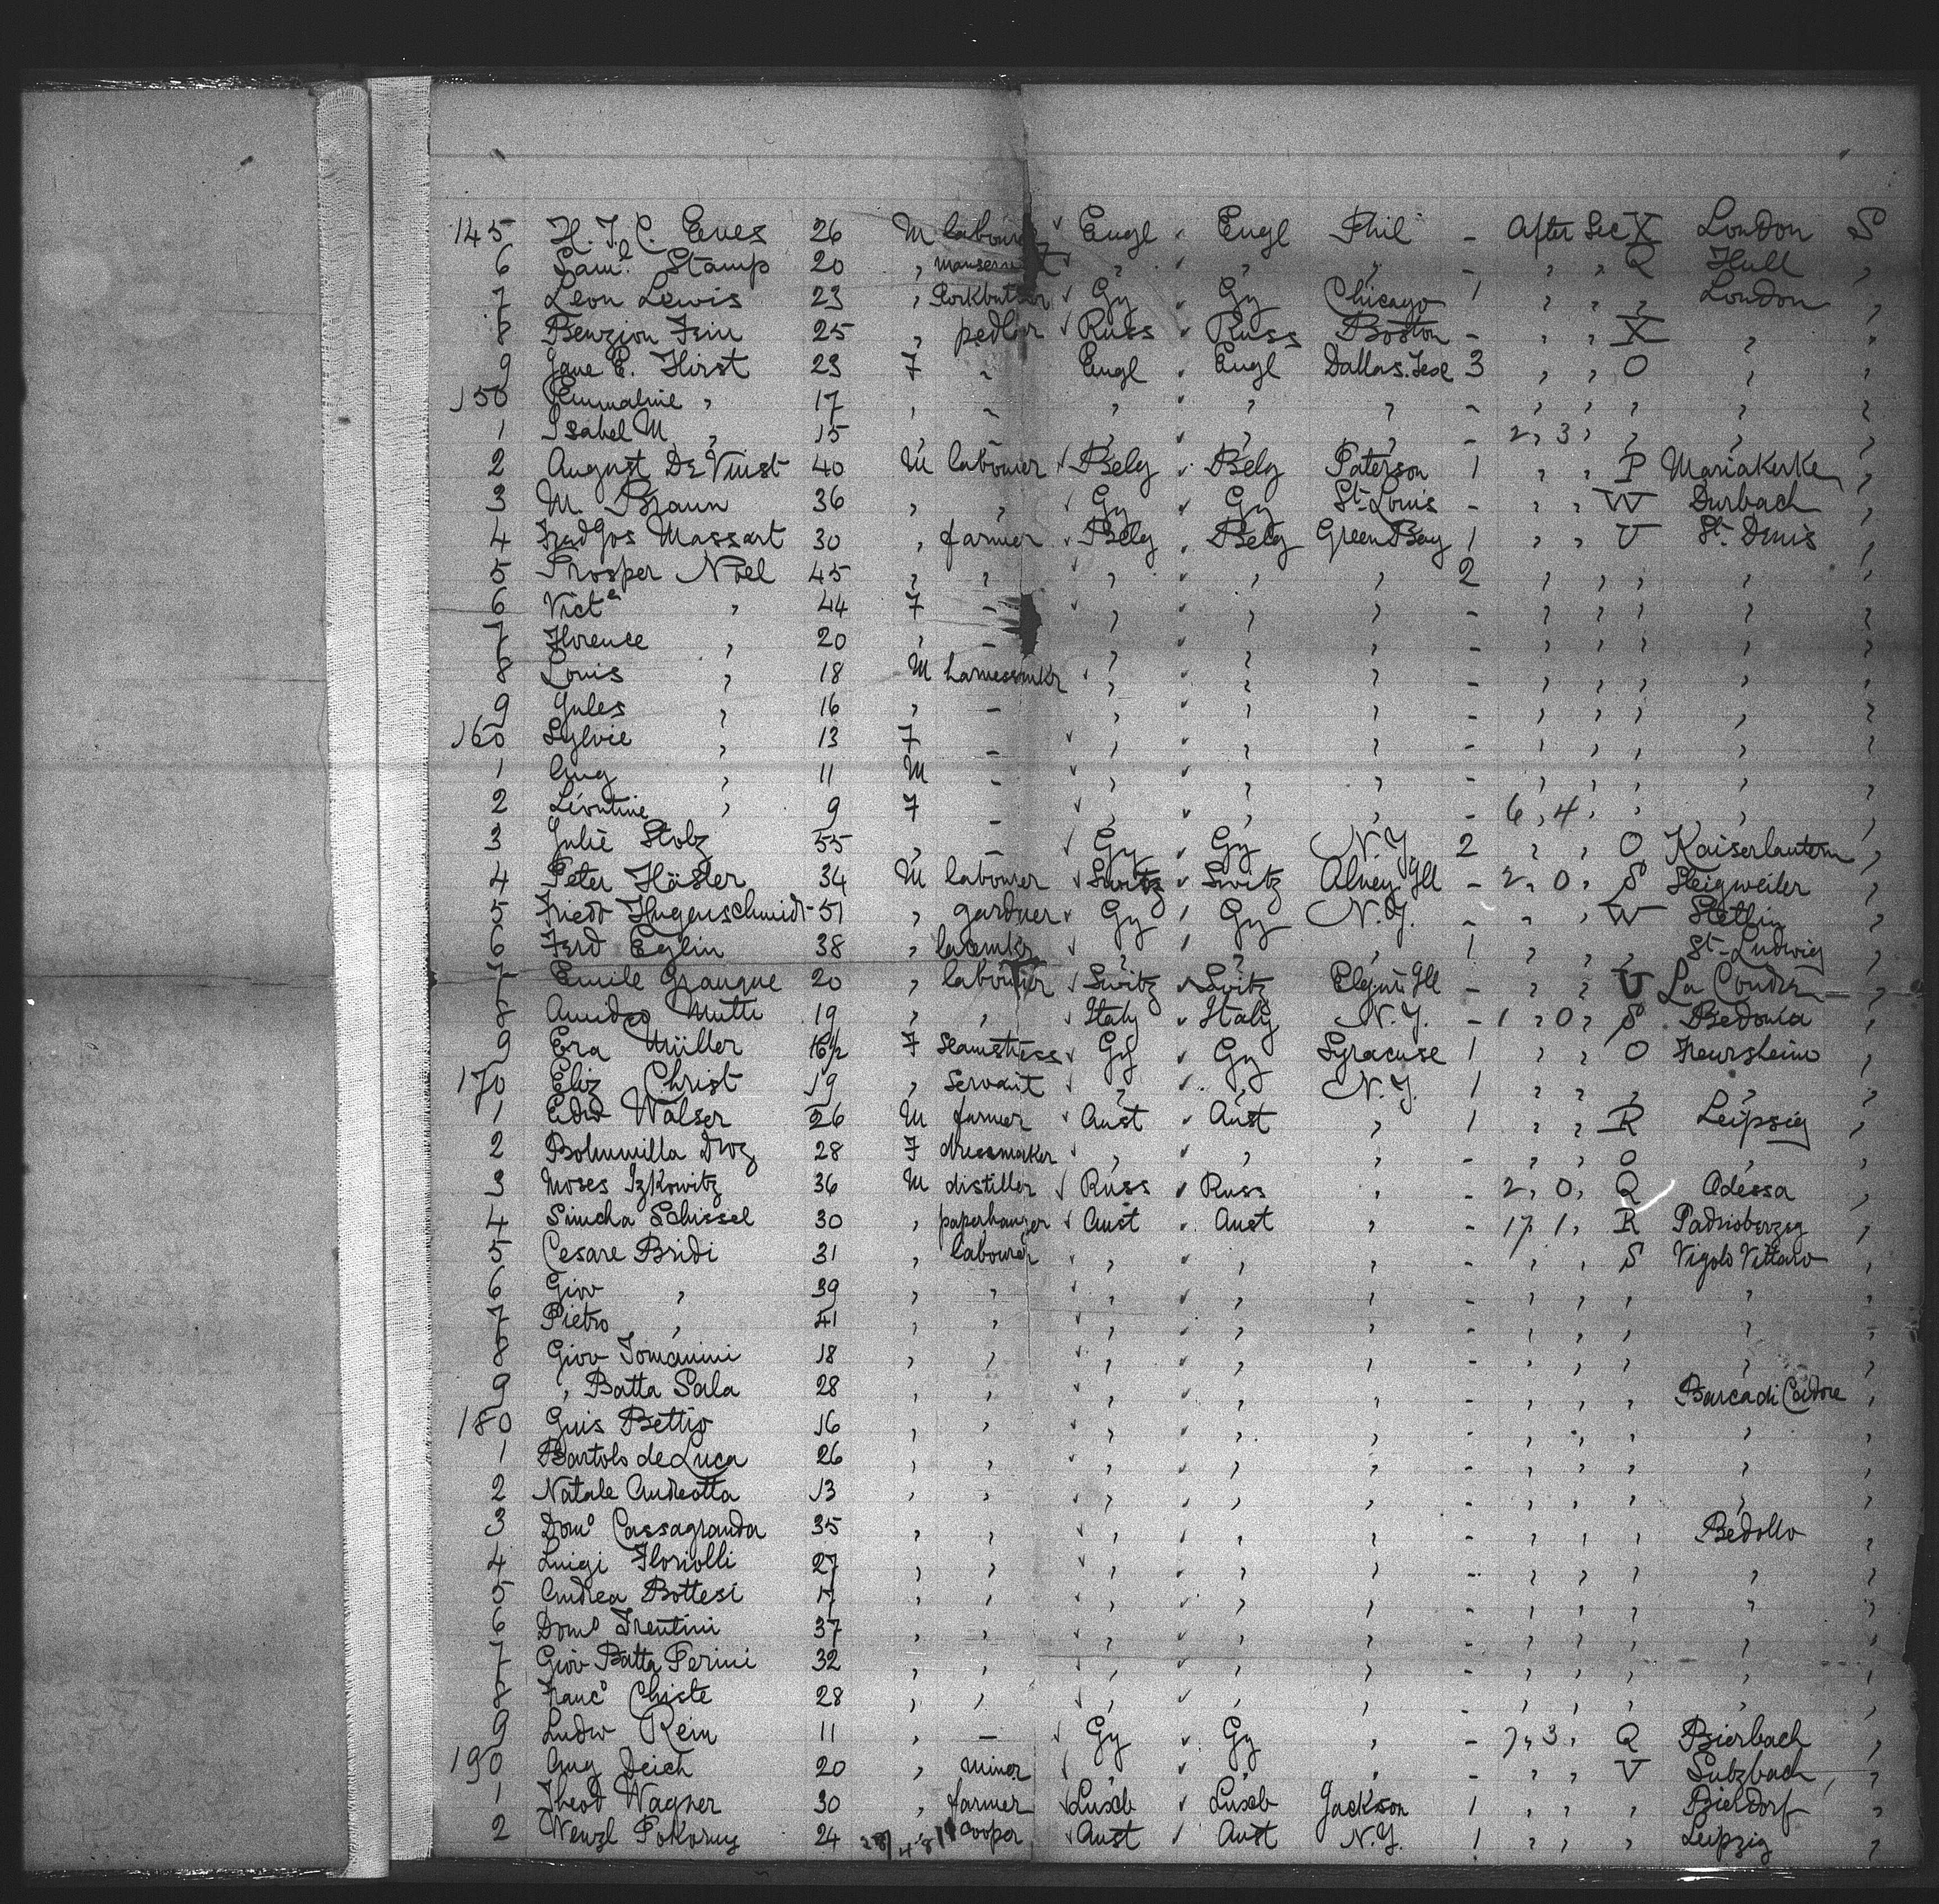 145 H. J. C. Eves 26 M labourer Engl Engl Phil - After Sec X London S
6 Saml. Stamp 20 , , , , - , , Q Hull ,
7 Leon Lewis 23 , Gy Gy Chicago 1 , , , London ,
8 Benzion 25 , pedler Russ Russ Boston - , , X , ,
9 Jane E. Hirst 23 F - Engl Engl Dallas. Tex 3 , , O , ,
150 Emmaline , 17 , - , , , - , , , , ,
1 Isabel M , 15 , , , , - 2, 3, , , ,
2 August De 40 M labourer Belg Belg Paterson 1 , , P Mariakerke ,
3 M. Braun 36 , , Gy Gy St. Louis - , , W Durbach ,
4 Massart 30 , farmer Belg Belg Green Bay 1 , , U St. Denis ,
5 Prosper Noel 45 , , , , , 2 , , , , ,
6 Vict , 44 F - , , , - , , , , ,
7 Florence , 20 , - , , , - , , , , ,
8 Louis , 18 M harnessmkr , , , - , , , , ,
9 Jules , 16 , - , , , - , , , , ,
160 Sylvie , 13 F - , , , - , , , , ,
1 Aug , 11 M - , , , - , , , , ,
2 Léontine , 9 F - , , , - 6, 4, , , ,
3 Julie Stolz 55 , - Gy Gy N.Y. 2 , , O Kaiserlautern ,
4 Peter Häsler 34 M labourer Switz Switz Ill - 2, 0, S ,
5 Friedr Hugenschmidt 51 , gardner Gy Gy N.Y. - , , W Stettin ,
6 Ferd Eglin 38 , , , , 1 , , , St. Ludwig ,
7 Emile 20 , labourer Switz Switz Elgin Ill - , , U La ,
8 Amideo Mutti 19 , , Italy Italy N.Y. - 1, 0, S Bedonia ,
9 Eva Müller 16½ F Seamstress Gy Gy Syracuse 1 , , O ,
170 Eliz Christ 19 , Servant , , N.Y. 1 , , , , ,
1 Edw Walser 26 M farmer Aust Aust , 1 , , R Leipsig ,
2 Bohumilla Droz 28 F dressmaker , , , - , , O , ,
3 Moses Izkowitz 36 M distiller Russ Russ , - 2, 0, Q Odessa ,
4 Simcha Schissel 30 , paperhanger Aust Aust , - 17, 1, R ,
5 Cesare Bridi 31 , labourer , , , - , , S Vigolo Vattaro ,
6 Giov , 39 , , , , , - , , , , ,
7 Pietro , 41 , , , , , - , , , , ,
8 Giov Tomanini 18 , , , , , - , , , , ,
9 , Batta Sala 28 , , , , , - , , , Barca di Cadore ,
180 Guis Bettio 16 , , , , , - , , , , ,
1 Bartolo de Luca 26 , , , , , - , , , , ,
2 Natale Andreotta 13 , , , , , - , , , , ,
3 Domo Cassagranda 35 , , , , , - , , , Bedollo ,
4 Luigi Floriolli 27 , , , , , - , , , , ,
5 Andrea Bottesi 17 , , , , , - , , , , ,
6 Domo Trentini 37 , , , , , - , , , , ,
7 Giov Batta Perini 32 , , , , , - , , , , ,
8 Franco Chiste 28 , , , , , - , , , , ,
9 Ludw Rein 11 , - Gy Gy , - 7, 3, Q Bierbach ,
190 Aug Deich 20 , miner , , , - , , V Sulzbach ,
1 Theod Wagner 30 , farmer Luxb Luxb Jackson 1 , , , Bierdorf ,
2 Wenzl Pokorny 24 cooper Aust Aust N.Y. 1 , , , Leipzig ,